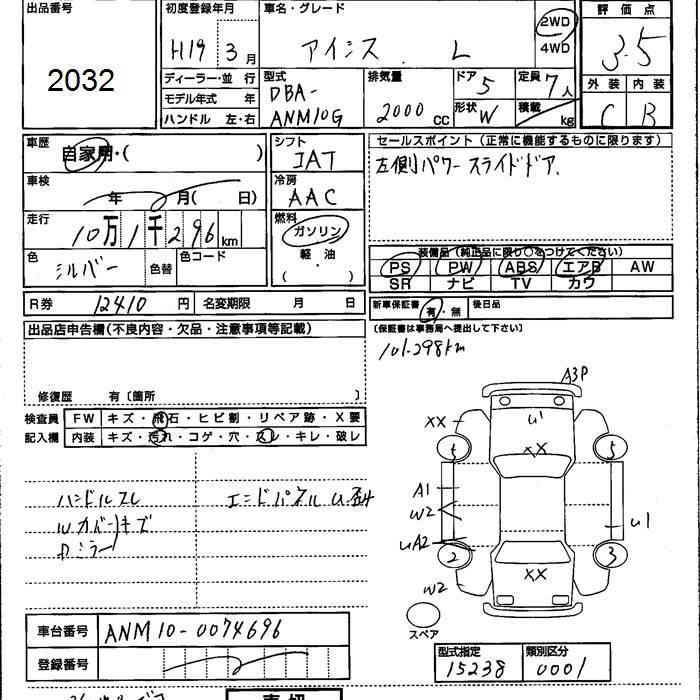 出品番号
2032
初度登録年月
H19 3月
車名・グレード
アイシス L
2WD
4WD
評価点
3.5
外装 内装
C B
ディーラー・並行
モデル年式 年
ハンドル 左・右
型式
DBA-
ANM10G
排気量
2000 CC
ドア 5
形状 W
定員 7人
積載 kg
車歴
自家用・( )
車検
年 月( 日)
走行
10万1千296km
色
シルバー
色替
色コード
シフト
IAT
冷房
AAC
燃料
ガソリン
軽・油
( )
セールスポイント(正常に機能するものに限ります)
左側パワースライドドア.
装備品(純正品に限り○をつけてください)
PS PW ABS エアB AW
SR ナビ TV カワ
R券 12410 円 名変期限 月 日
新車保証書 有・無 後日品
(保証書は事務局へ提出して下さい)
101.298km
出品店申告欄(不良内容・欠品・注意事項等記載)
修復歴 有〔箇所 〕
検査員
記入欄
FW キズ・飛石・ヒビ割・リペア跡・X要
内装 キズ・汚れ・コゲ・穴・スレ・キレ・破レ
ハンドルスレ
エンドパネルU.歪み
Wカバーキズ
Dミラー
A3P
U1
XX
XX
5
5
A1
W2
U1
UA2
2
3
W2
XX
スペア
車台番号 ANM10-0074696
登録番号
型式指定 類別区分
15238 0001